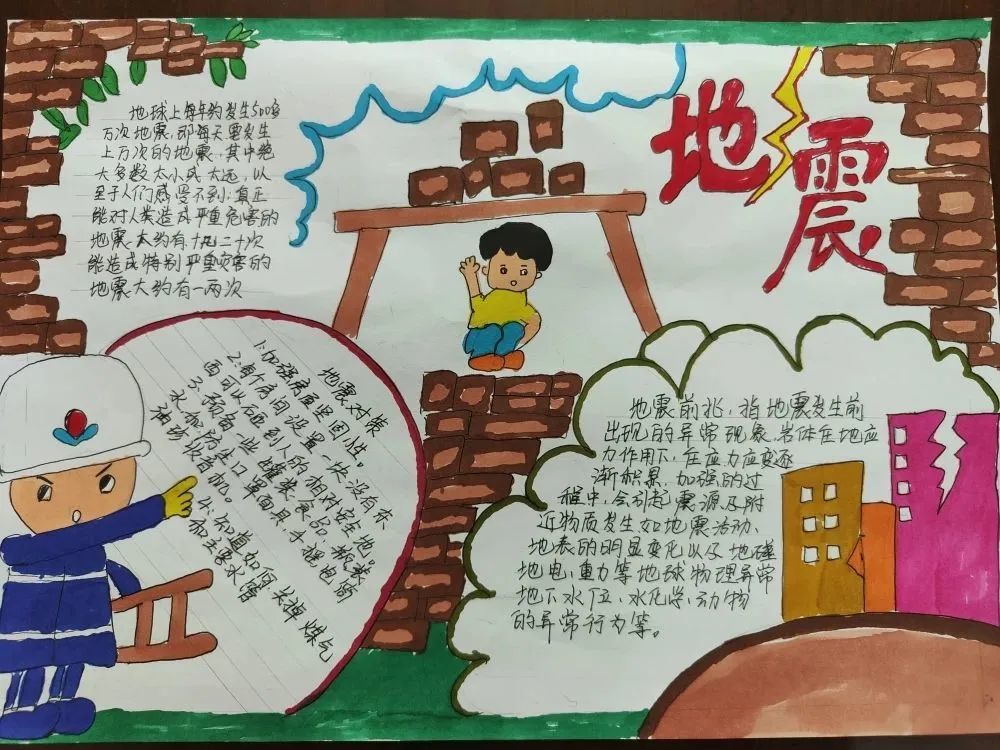 地震
地球上每年约发生500多
万次地震,即每天要发生
上万次的地震,其中绝
大多数太小或太远,以
至于人们感受不到.真正
能对人类造成严重危害的
地震大约有十九二十次
能造成特别严重灾害的
地震大约有一两次
地震对策
1.加强房屋坚固性。
2.每个房间设置一块没有东
西可以砸到人的相对安全地。
3.预备一些罐装食品,瓶装
水,加防尘口罩面具,手提电筒
4.知道如何关掉煤气
和主要水管
地震前兆,指地震发生前
出现的异常现象.岩体在地应
力作用下,在应力应变逐
渐积累,加强的过
程中,会引起震源及附
近物质发生如地震活动、
地表的明显变化以及地磁
地电、重力等地球物理异常
地下水位,水化学,动物
的异常行为等。